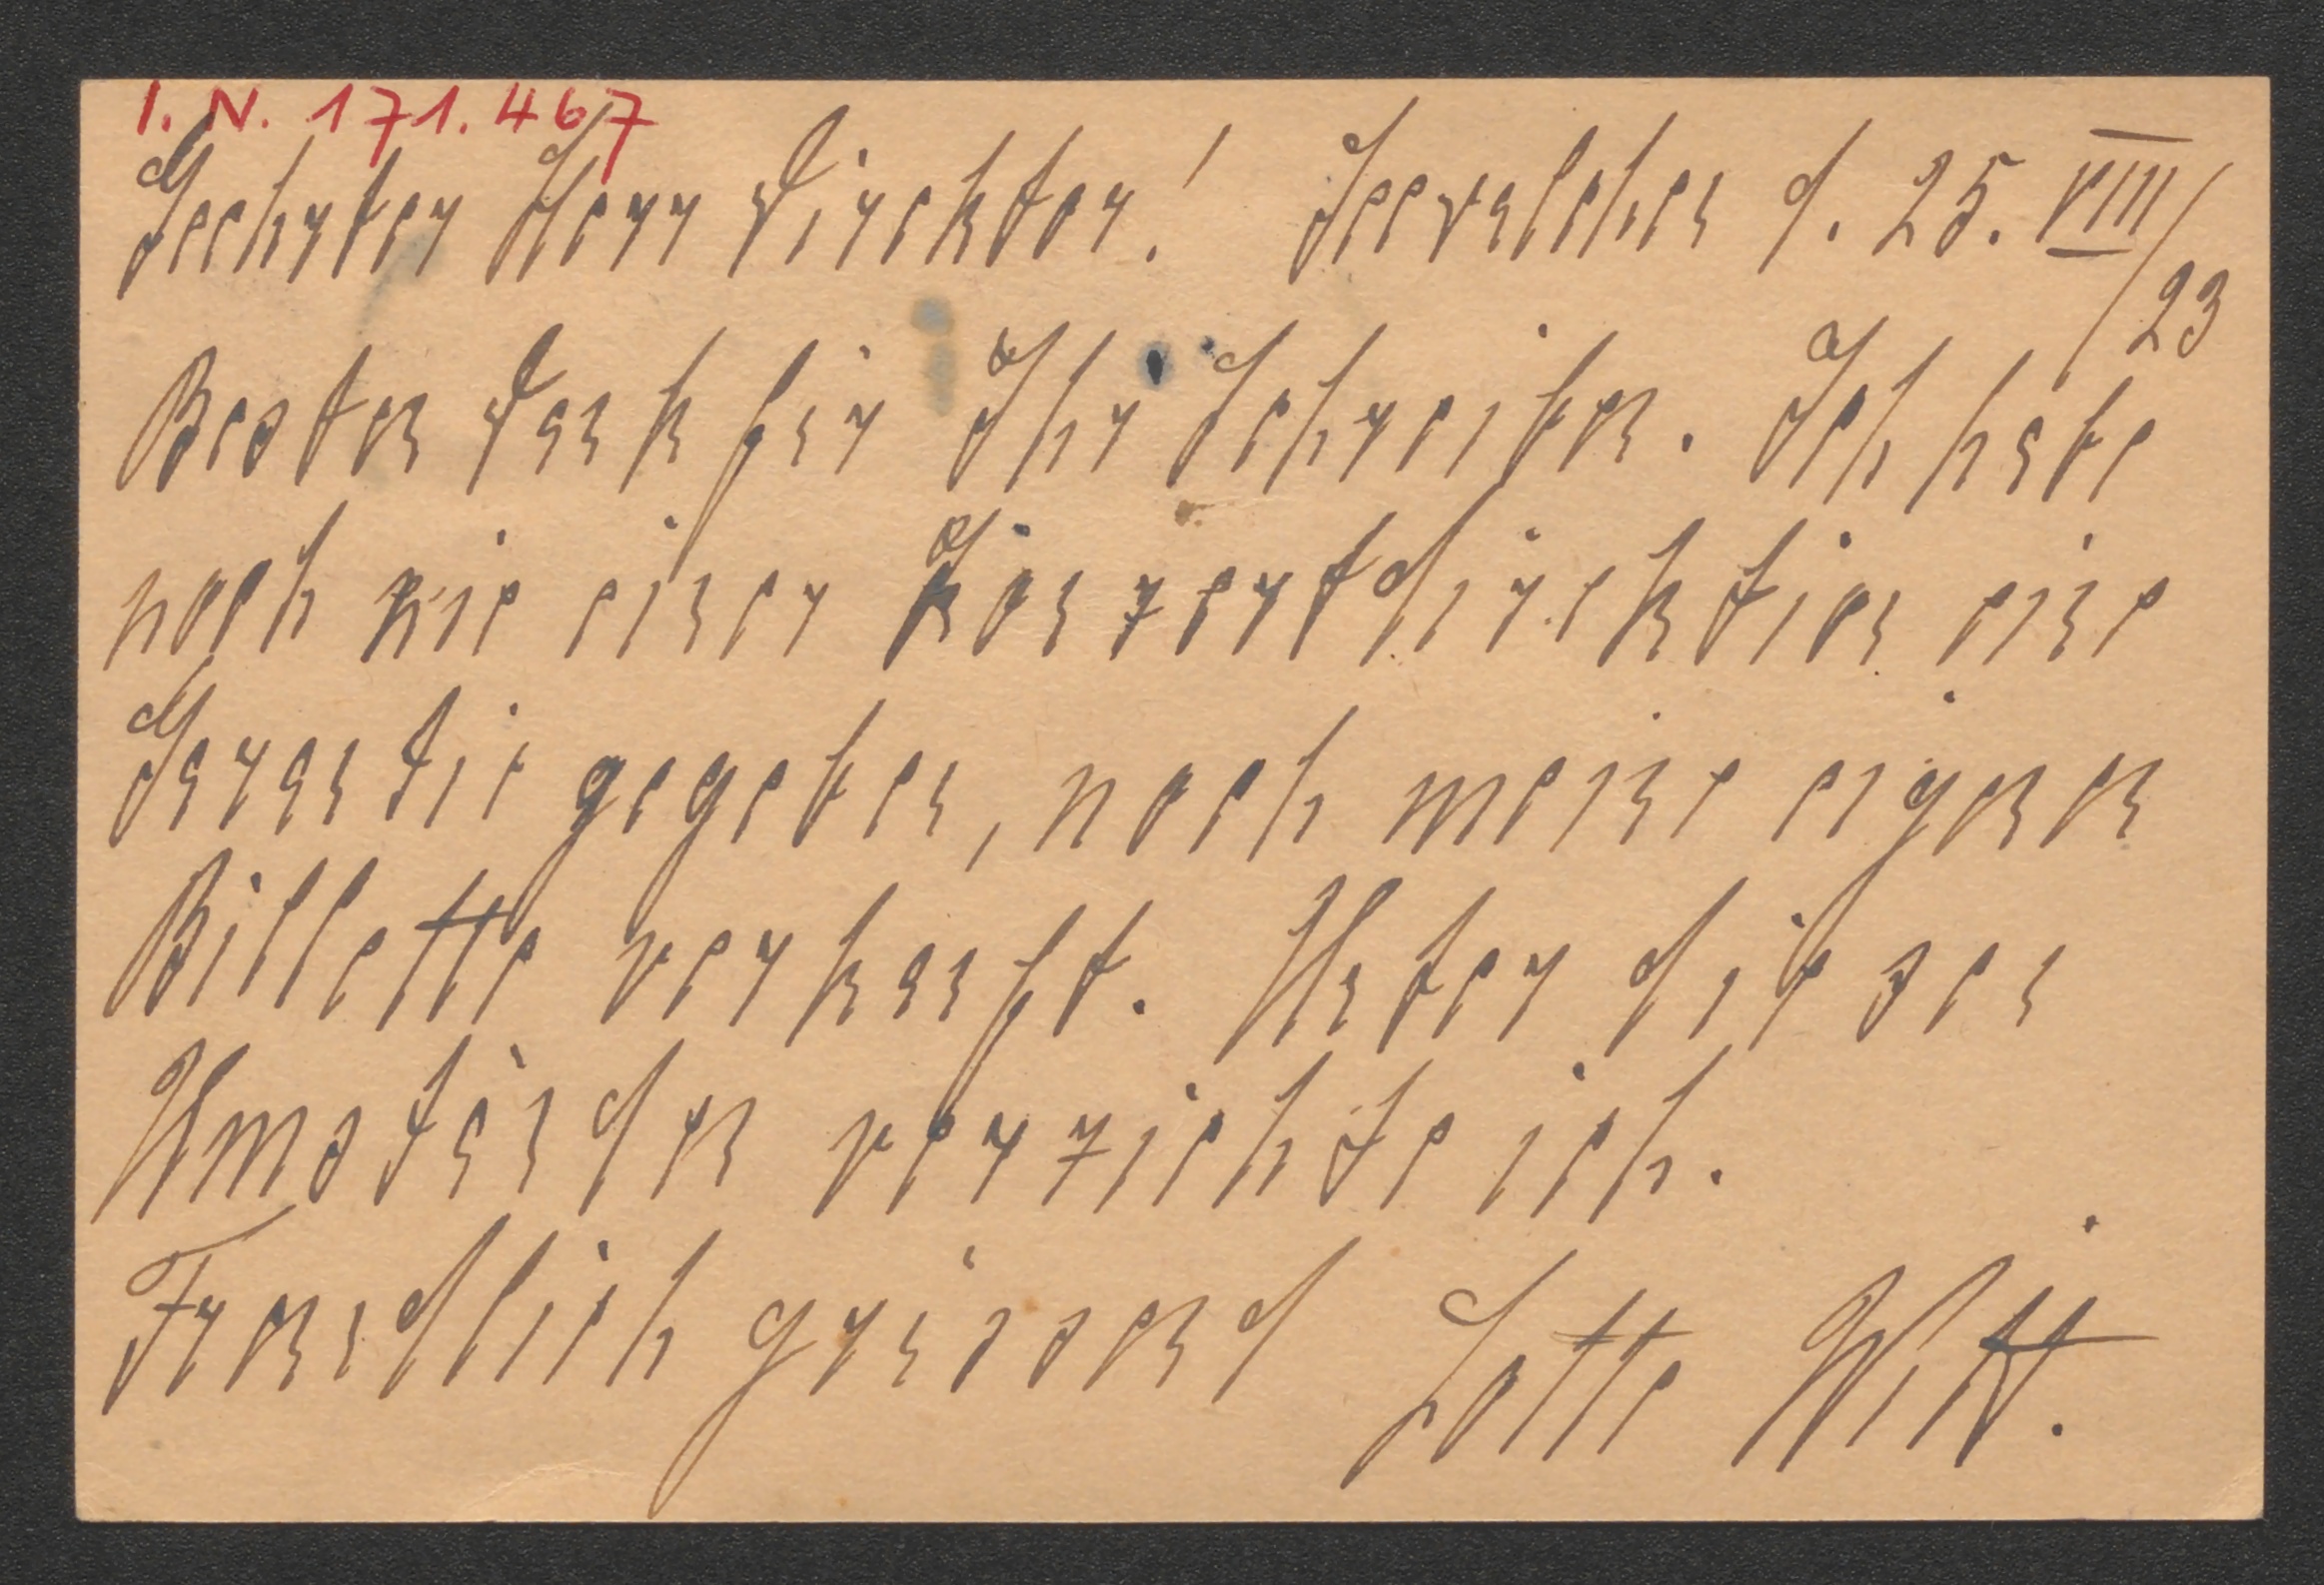 I. N. 171.467
Geehrter Herr Direktor! Seewalchen d. 25. VIII/23
Besten Dank für Ihr Schreiben. Ich habe
noch nie einer Konzertdirektion eine
Garantie gegeben, noch meine eigenen
Billette verkauft. Unter diesen
Umständen verzichte ich.
Freundlich grüssend Lotte Witt.